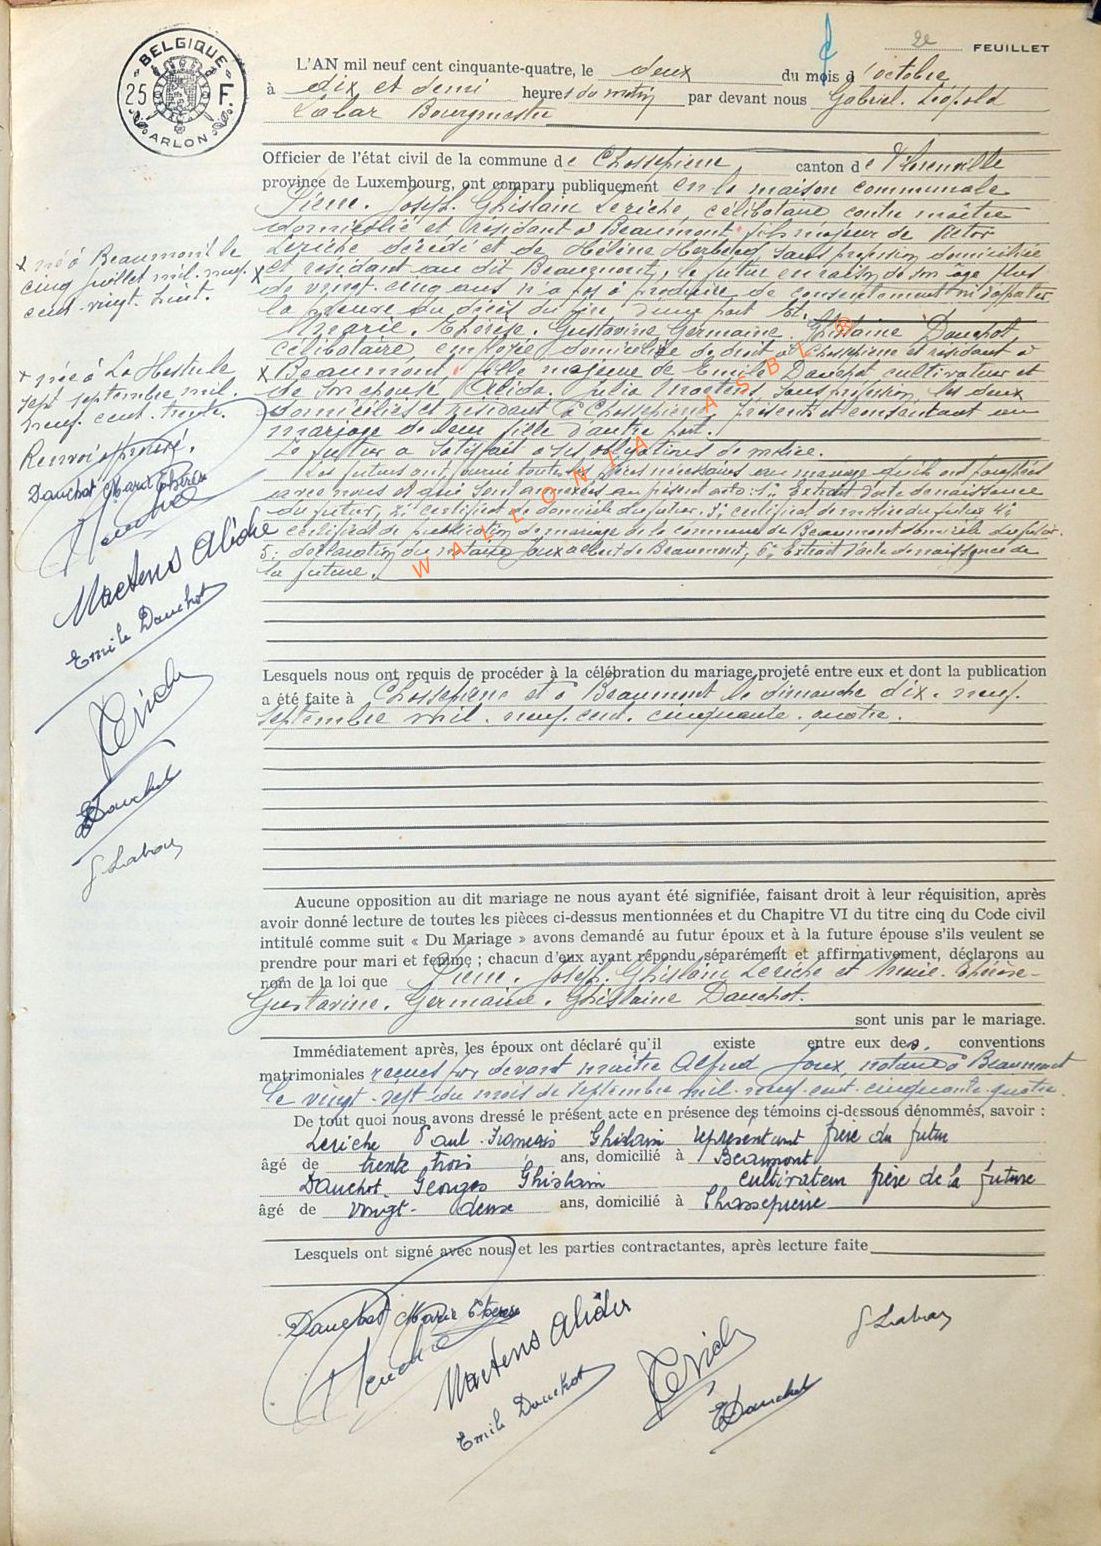 2e FEUILLET
BELGIQUE
25 F.
ARLON
L'AN mil neuf cent cinquante-quatre, le deux du mois d'octobre
à dix et demi heures du matin par devant nous Gabriel. Léopold
Labar Bourgmestre
Officier de l'état civil de la commune de Chassepierre canton de Florenville
province de Luxembourg, ont comparu publiquement en la maison communale
Pierre. Joseph. Ghislain Leriche, célibataire, contre maître
domicilié et résidant à Beaumont fils majeur de
Leriche décédé et de Hélène sans profession domiciliée
et résidant au dit Beaumont, le futur en raison de son âge plus
de vingt-cinq ans n'a pas à produire de consentement ni d'apporter
la preuve du décès du père, d'une part Et.
Marie. Thérèse. Gustavine Germaine. Ghislaine Dauchot,
célibataire, employée domiciliée de droit à Chassepierre et résidant à
Beaumont fille majeure de Emile Dauchot cultivateur et
de son épouse Alida. Julia Maetens, sans profession, les deux
domiciliés et résidant à Chassepierre présents et consentant au
mariage de leur fille d'autre part.
Le futur a satisfait à ses obligations de milice.
Les futurs ont fourni toutes les pièces nécessaires au mariage qu'ils ont paraphées
avec nous et qui sont annexées au présent acte: 1° Extrait d'acte de naissance
du futur, 2° certificat de domicile du futur. 3° certificat de milice du futur 4°
certificat de publication de mariage de la commune de Beaumont domicile du futur.
5° déclaration du notaire Joux de Beaumont, 6° Extrait d'acte de naissance de
la future.
x né à Beaumont le
cinq juillet mil. neuf. x
cent. vingt. huit.
x née à La Hestre le
sept septembre mil. x
neuf. cent. trente.
Renvoi approuvé.
Dauchot Marie Thérèse
Leriche
Maetens Alida
Emile Dauchot
Leriche
GDauchot
G Labar
WALLONIA ASBL ®
Lesquels nous ont requis de procéder à la célébration du mariage projeté entre eux et dont la publication
a été faite à Chassepierre et à Beaumont le dimanche dix. neuf.
septembre mil. neuf. cent. cinquante. quatre.
Aucune opposition au dit mariage ne nous ayant été signifiée, faisant droit à leur réquisition, après
avoir donné lecture de toutes les pièces ci-dessus mentionnées et du Chapitre VI du titre cinq du Code civil
intitulé comme suit « Du Mariage » avons demandé au futur époux et à la future épouse s'ils veulent se
prendre pour mari et femme ; chacun d'eux ayant répondu séparément et affirmativement, déclarons au
nom de la loi que Pierre. Joseph. Ghislain Leriche et Marie. Thérèse-
Gustavine. Germaine. Ghislaine Dauchot.
sont unis par le mariage.
Immédiatement après, les époux ont déclaré qu'il existe entre eux des conventions
matrimoniales reçues par devant maître Alfred Joux, notaire à Beaumont
le vingt. sept du mois de septembre mil. neuf. cent. cinquante. quatre.
De tout quoi nous avons dressé le présent acte en présence des témoins ci-dessous dénommés, savoir :
Leriche Paul François Ghislain représentant frère du futur
âgé de trente trois ans, domicilié à Beaumont
Dauchot. Georges Ghislain cultivateur frère de la future
âgé de vingt- deux ans, domicilié à Chassepierre
Lesquels ont signé avec nous et les parties contractantes, après lecture faite
Dauchot Marie Thérèse
Leriche
Maetens Alida
Emile Dauchot
Leriche
GDauchot
G Labar